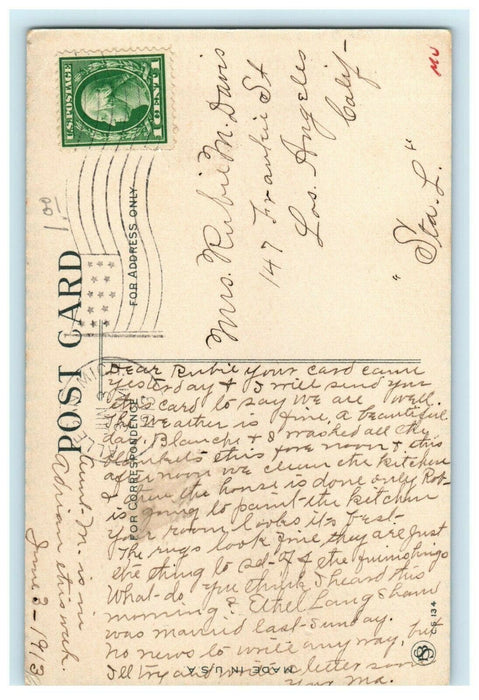 U.S. POSTAGE
1 CENT 1
MU
1 00
POST CARD
FOR ADDRESS ONLY
FOR CORRESPONDENCE
Mrs. Rubie M. Davis
147 Frankie St
Los. Angeles
Calif-
"Sta. L."
Dear Rubie your card came
yesterday & I will send you
this card to say we are well.
The Weather is fine, a beautiful
day, Blanche & I washed all the
blankets this fore noon & this
afternoon we clean the kitchen
& then the house is done only Rob-
is going to paint the kitchen
your room looks its best-
The rugs look fine they are just
the thing to set-off the furnishings
What-do you think I heard this
morning? Ethel Langsham
was married last-Sunday.
no news to write any way, but
I'll try and write a letter soon
Your Ma.
Aunt-M. is in
Adrian this week.
June 3-1913
MICH
MADE IN U.S.A.
CS 134